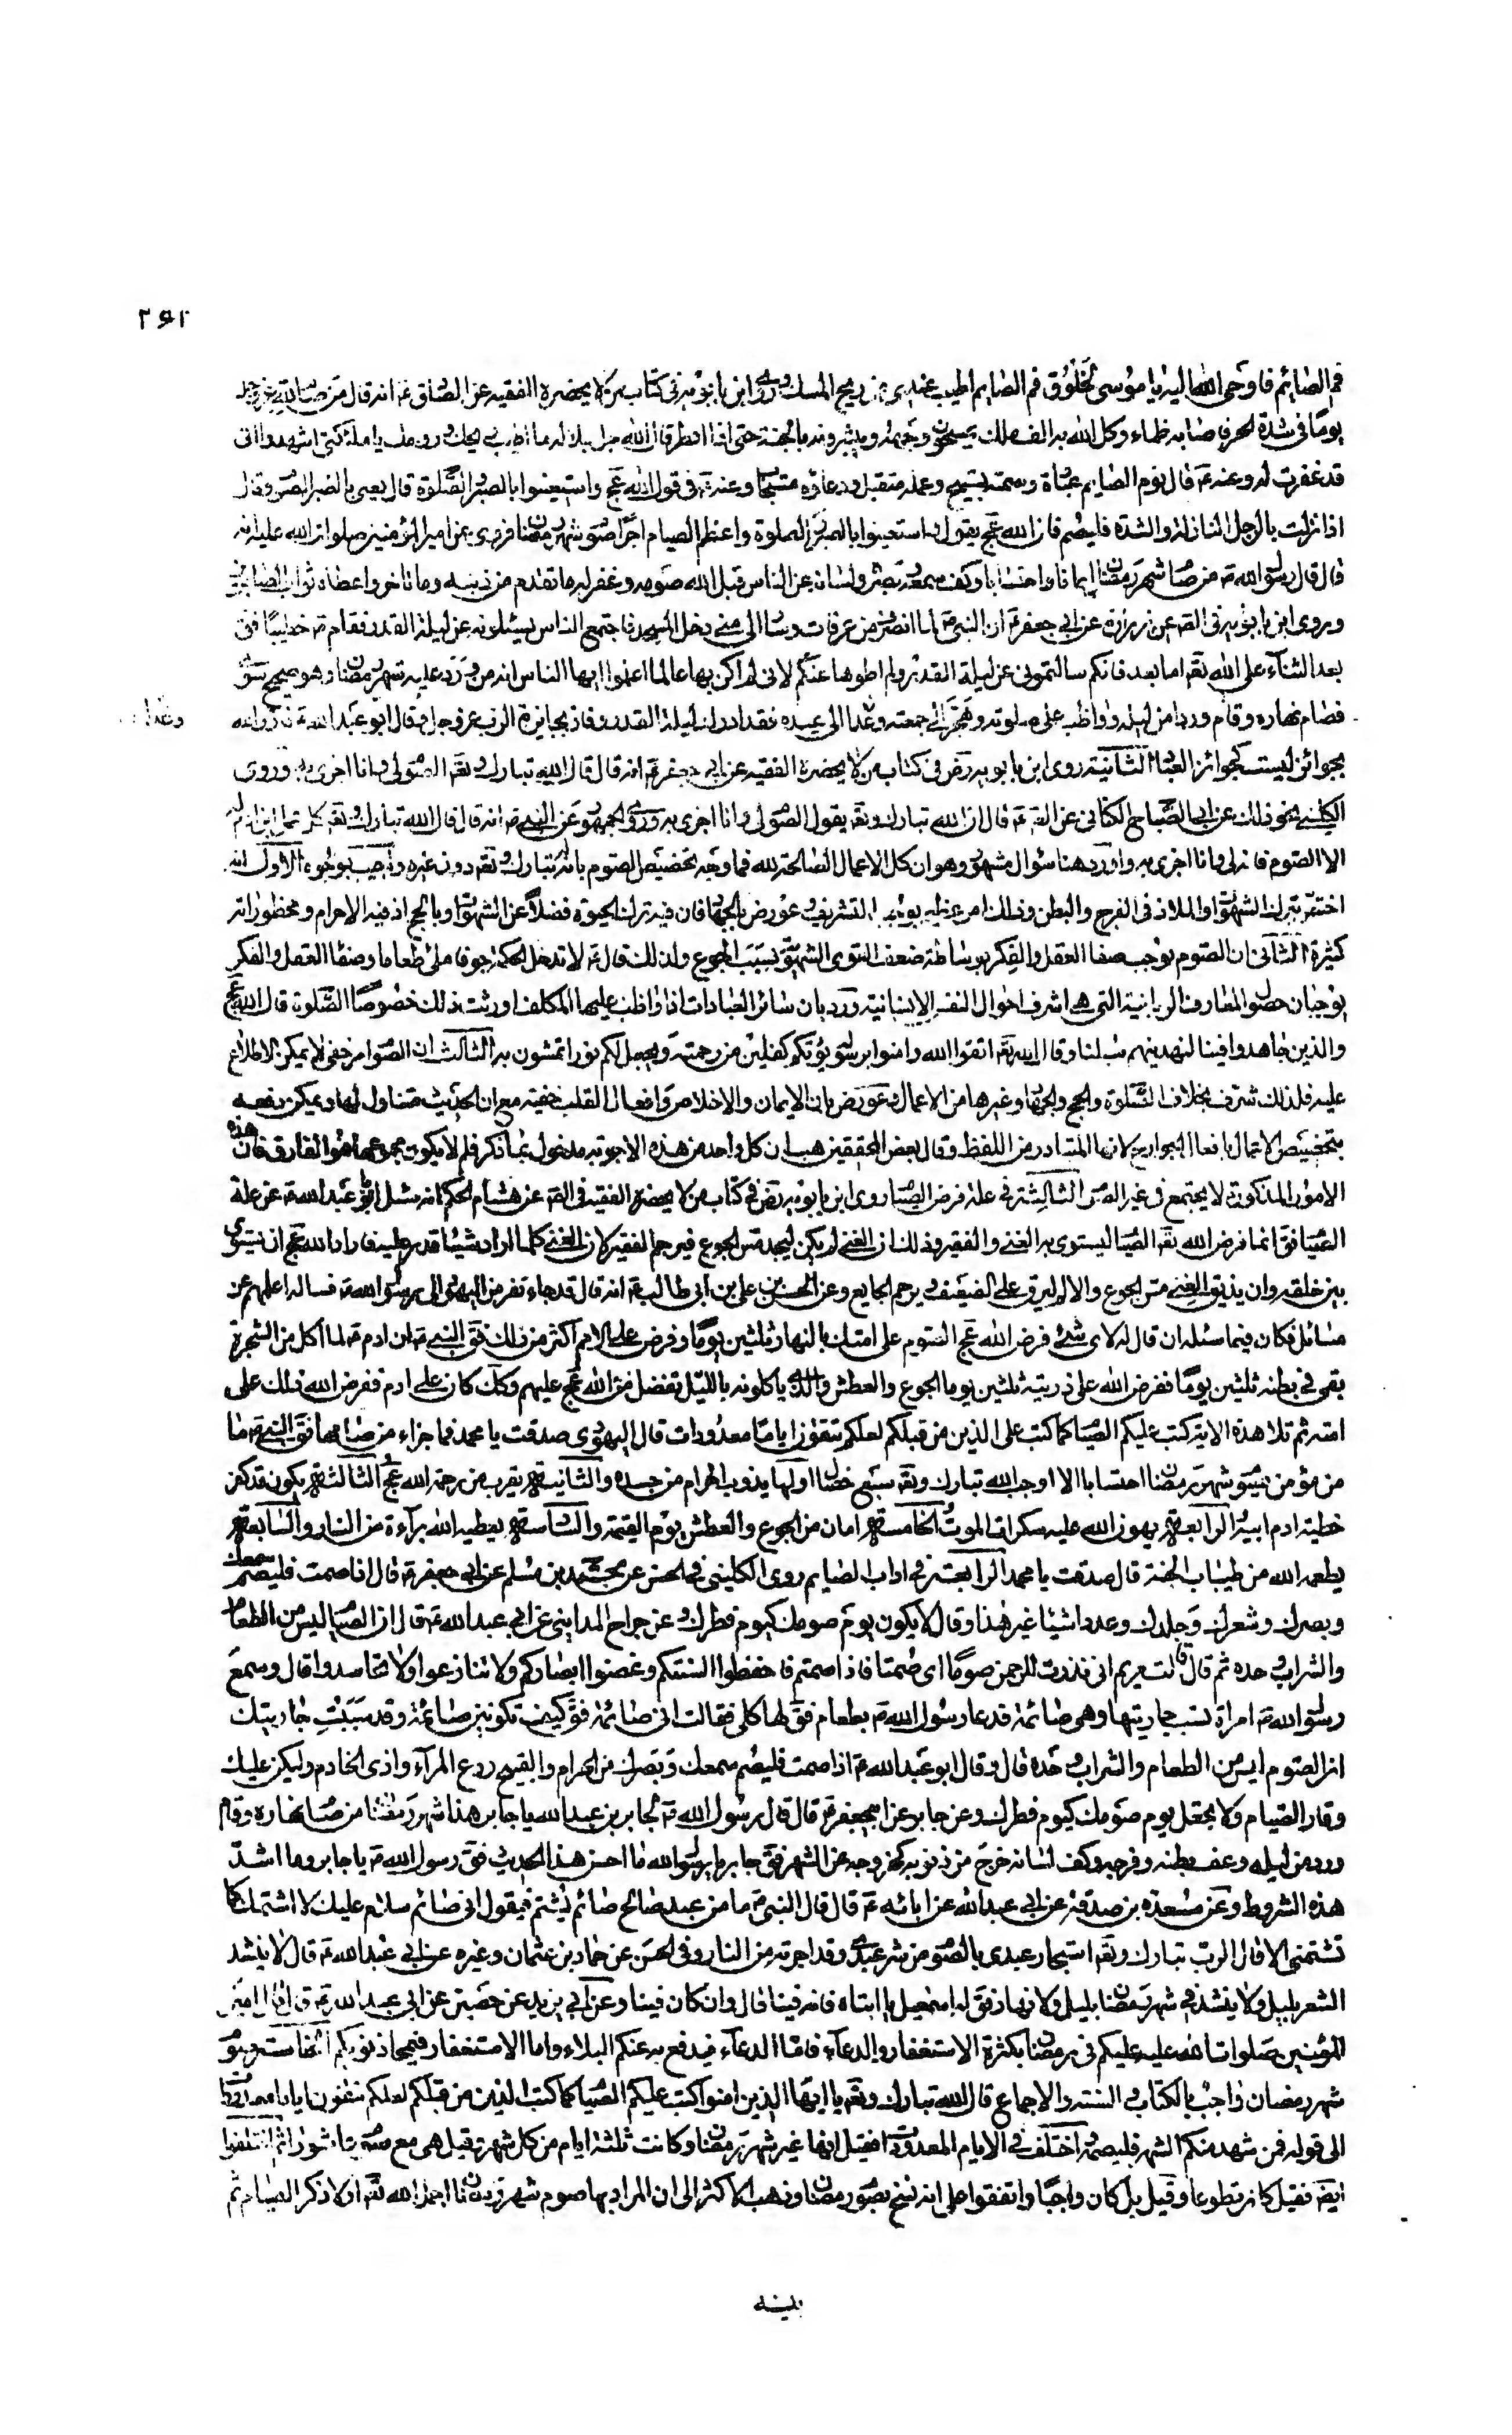 ٢۶٢
فم الصائم فاوحى الله اليه يا موسى لخلوق فم الصايم اطيب عندى من ريح المسك وروى ابن بابويه فى كتاب من لا يحضره الفقيه عن الصادق ع انه قال من صام لله عز وجل
يوما فى شدة الحر فاصابه ظماء وكل الله به الف ملك يمسحون وجهه ويبشرونه بالجنة حتى اذا افطر قال الله جل جلاله ما اطيب ريحك وروحك يا ملائكتى اشهدوا انى
قد غفرت له وعنه ع قال نوم الصايم عبادة وصمته تسبيح وعمله متقبل ودعاؤه مستجاب وعنه ع فى قول الله عج واستعينوا بالصبر والصلوة قال يعنى بالصبر الصوم وقال
اذا نزلت بالرجل النازلة والشدة فليصم فان الله عج يقول واستعينوا بالصبر والصلوة واعظم الصيام اجرا صوم شهر رمضان فروى عن امير المؤمنين صلوات الله عليه انه
قال قال رسول الله ص من صام شهر رمضان ايمانا واحتسابا وكف سمعه وبصره ولسانه عن الناس قبل الله صومه وغفر له ما تقدم من ذنبه وما تاخر واعطاه ثواب الصابرين
وروى ابن بابويه فى القه عن زرارة عن ابى جعفر ع ان النبى ص لما انصرف من عرفات وسار الى منى دخل المسجد فاجتمع الناس يسئلونه عن ليلة القدر فقام ص خطيبا فق
بعد الثنآء على الله تقه اما بعد فانكم سالتمونى عن ليلة القدر ولم اطوها عنكم لانى لم اكن بها عالما اعلموا ايها الناس انه من ورد عليه شهر رمضان وهو صحيح سوى
فصام نهاره وقام وردا من ليله وواظب على صلوته وهجر الى جمعته وغدا الى عيده فقد ادرك ليلة القدر وفاز بجايزة الرب عز وجل قال ابو عبد الله ع فاز والله
بجوائز ليست كجوائز العباد الثانية روى ابن بابويه رض فى كتاب من لا يحضره الفقيه عن ابى جعفر ع انه قال قال الله تبارك وتقه الصوم لى وانا اجزى به وروى
الكلينى نحو ذلك عن ابى الصباح الكنانى عن القه ع قال ان الله تبارك وتقه يقول الصوم لى وانا اجزى به وروى الجمهور عن النبى ص انه قال قال الله تبارك وتقه كل عمل ابن ادم له
الا الصوم فانه لى وانا اجزى به واورد هنا سؤال مشهور وهو ان كل الاعمال الصالحة لله فما وجه تخصيص الصوم بانه له تبارك وتقه دون غيره واجيب بوجوه الاول انه
اختص بترك الشهوات والملاذ فى الفرج والبطن وذلك امر عظيم يوجب التشريف وعورض بالجهاد فان فيه ترك الحيوة فضلا عن الشهوات وبالحج اذ فيه الاحرام ومحظوراته
كثيرة الثانى ان الصوم يوجب صفاء العقل والفكر بوساطة ضعف القوى الشهوية بسبب الجوع ولذلك قال ع لا تدخل الحكمة جوفا ملئ طعاما وصفاء العقل والفكر
يوجبان حصول المعارف الربانية التى هى اشرف احوال النفس الانسانية ورد بان سائر العبادات اذا واظب عليها المكلف اورثت ذلك خصوصا الصلوة قال الله عج
والذين جاهدوا فينا لنهدينهم سبلنا وقال الله تقه اتقوا الله وامنوا برسوله يؤتكم كفلين من رحمته ويجعل لكم نورا تمشون به الثالث ان الصوم امر خفى لا يمكن الاطلاع
عليه فلذلك شرف بخلاف الصلوة والحج والجهاد وغيرها من الاعمال وعورض بان الايمان والاخلاص وافعال القلب خفية مع ان الحديث متناول لها ويمكن دفعه
بتخصيص الاعمال بافعال الجوارح لانها المتبادر من اللفظ وقال بعض المحققين هب ان كل واحد من هذه الاجوبة مدخول بما ذكر فلم لا يكون مجموعها هو الفارق فان هذه
الامور المذكورة لا يجتمع فى غير الصوم الثالثة فى علة فرض الصيام روى ابن بابويه رض فى كتاب من لا يحضره الفقيه فى القه عن هشام الحكم انه سئل ابو عبد الله ع عن علة
الصيام فق انما فرض الله تقه الصيام ليستوى به الغنى والفقير وذلك ان الغنى لم يكن ليجد مس الجوع فيرحم الفقير لان الغنى كلما اراد شيئا قدر عليه فاراد الله عج ان يسوى
بين خلقه وان يذيق الغنى مس الجوع والالم ليرق على الضعيف ويرحم الجايع وعن الحسن بن على بن ابى طالب ع انه قال قد جاء نفر من اليهود الى رسول الله ص فساله اعلمهم عن
مسائل فكان فيما سئله ان قال له لاى شئ فرض الله عج الصوم على امتك بالنهار ثلثين يوما وفرض على الامم اكثر من ذلك فق النبى ص ان ادم ع لما اكل من الشجرة
بقى فى بطنه ثلثين يوما ففرض الله على ذريته ثلثين يوما الجوع والعطش والذى ياكلونه بالليل تفضل من الله عج عليهم وكك كان على ادم ففرض الله ذلك على
امته ثم تلا هذه الاية كتب عليكم الصيام كما كتب على الذين من قبلكم لعلكم تتقون اياما معدودات قال اليهودى صدقت يا محمد فما جزاء من صامها فق النبى ص ما
من مؤمن يصوم شهر رمضان احتسابا الا اوجب الله تبارك وتقه سبع خصال اولها يذوب الحرام من جسده والثانية يقرب من رحمة الله عج الثالثة يكون قد كفر
خطيئة ادم ابيه الرابعة يهون الله عليه سكرات الموت الخامسة امان من الجوع والعطش يوم القيمة والسادسة يعطيه الله برآءة من النار والسابعة
يطعمه الله من طيبات الجنة قال صدقت يا محمد الرابعة فى اداب الصايم روى الكلينى فى الحسن عن محمد بن مسلم عن ابى جعفر ع قال اذا صمت فليصم سمعك
وبصرك وشعرك وجلدك وعدد اشيا غير هذا وقال لا يكون يوم صومك كيوم فطرك وعن جراح المداينى عن ابى عبد الله ع قال ان الصيام ليس من الطعام
والشراب وحده ثم قال قالت مريم انى نذرت للرحمن صوما اى صمتا فاذا صمتم فاحفظوا السنتكم وغضوا ابصاركم ولا تنازعوا ولا تحاسدوا قال وسمع
رسول الله ص امراة تسب جاريتها وهى صائمة فدعا رسول الله ص بطعام فق لها كلى فقالت انى صائمة فق كيف تكونين صائمة وقد سببت جاريتك
ان الصوم ليس من الطعام والشراب وحده قال وقال ابو عبد الله ع اذا صمت فليصم سمعك وبصرك من الحرام والقبيح ودع المرآء واذى الخادم وليكن عليك
وقار الصيام ولا تجعل يوم صومك كيوم فطرك وعن جابر عن ابى جعفر ع قال قال رسول الله ص لجابر بن عبد الله يا جابر هذا شهر رمضان من صام نهاره وقام
ورد من ليله وعف بطنه وفرجه وكف لسانه خرج من ذنوبه كخروجه من الشهر فق جابر يا رسول الله ما احسن هذا الحديث فق رسول الله ص يا جابر وما اشد
هذه الشروط وعن مسعدة بن صدقة عن ابى عبد الله عن ابائه ع قال قال النبى ص ما من عبد صالح صائم يشتم فيقول انى صائم سلام عليك لا اشتمك كما
تشتمنى الا قال الرب تبارك وتقه استجار عبدى بالصوم من شر عبدى وقد اجرته من النار وفى الحسن عن حماد بن عثمان وغيره عن ابى عبد الله ع قال لا ينشد
الشعر بليل ولا ينشد فى شهر رمضان بليل ولا نهار فق له اسمعيل يا ابتاه فانه فينا قال وان كان فينا وعن ابى بزيد عن حصين عن ابى عبد الله ع قال قال امير
المؤمنين صلوات الله عليه عليكم فى شهر رمضان بكثرة الاستغفار والدعآء فاما الدعآء فيدفع به عنكم البلاء واما الاستغفار فيمحا ذنوبكم الخامسة صوم
شهر رمضان واجب بالكتاب والسنة والاجماع قال الله تبارك وتقه يا ايها الذين امنوا كتب عليكم الصيام كما كتب الذين من قبلكم لعلكم تتقون اياما معدودات
الى قوله فمن شهد منكم الشهر فليصمه اختلف فى الايام المعدودات فقيل انها غير شهر رمضان وكانت ثلثة ايام من كل شهر وقيل هى مع صوم عاشورا ثم اختلفوا
ايضا فقيل كان تطوعا وقيل بل كان واجبا واتفقوا على انه نسخ بصوم رمضان وذهب الاكثر الى ان المراد بها صوم شهر رمضان اجمل الله تقه اولا ذكر الصيام ثم
بينه